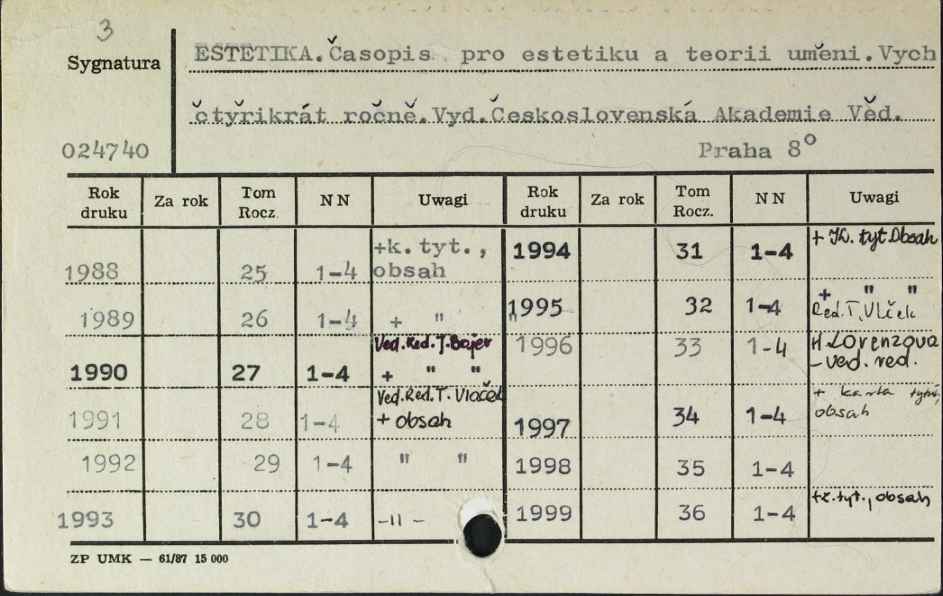 3
Sygnatura
ESTETIKA.Časopis pro estetiku a teorii uměni.Vych
čtyřikrát ročně.Vyd.Československá Akademie Věd.
024740 Praha 8°
Rok druku Za rok Tom Rocz. NN Uwagi Rok druku Za rok Tom Rocz. NN Uwagi
1988 25 1-4 +k. tyt., obsah
1989 26 1-4 + "
1990 27 1-4 Ved.Red.J.Bajer + " "
1991 28 1-4 Ved.Red.T.Vlaček + obsah
1992 29 1-4 " "
1993 30 1-4 -11-
1994 31 1-4 + K. tyt Obsah
1995 32 1-4 + " " Red.T.Vlček
1996 33 1-4 H Lorenzova -ved. red.
1997 34 1-4 + karta tytuł, obsah
1998 35 1-4
1999 36 1-4 +k.tyt., obsah
ZP UMK — 61/87 15 000